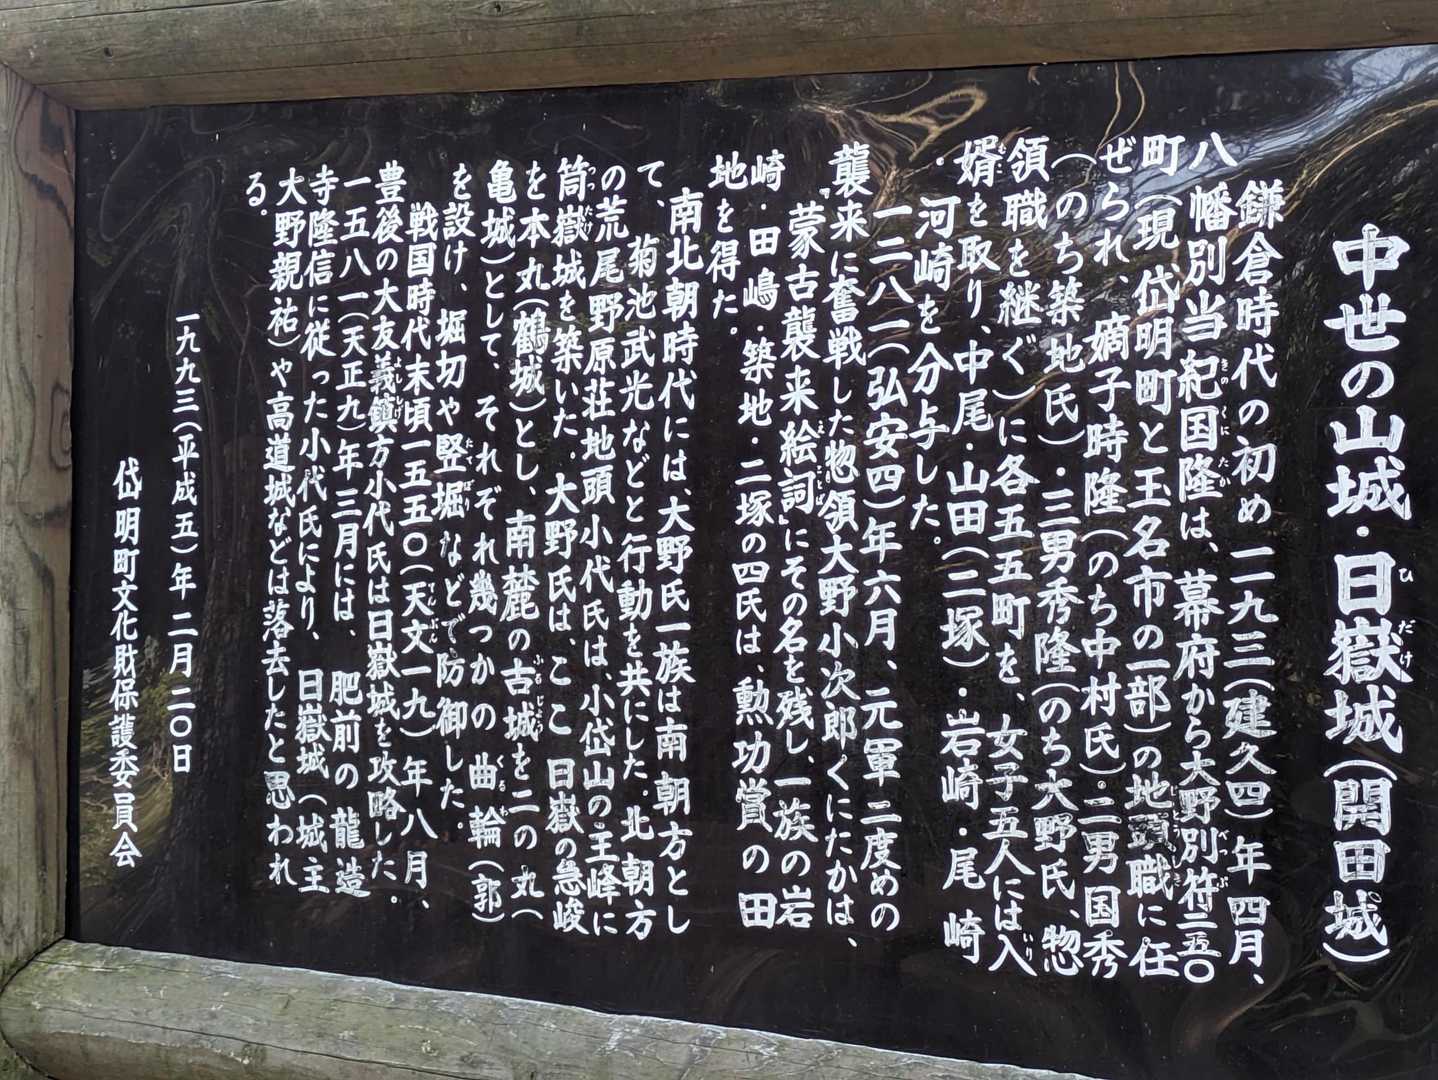 中世の山城・日嶽城(開田城)
鎌倉時代の初め一一九三(建久四)年四月、
八幡別当紀国隆は、幕府から大野別符二五〇
町(現岱明町と玉名市の一部)の地頭職に任
ぜられ、嫡子時隆(のち中村氏)・二男国秀
(のち築地氏)・三男秀隆(のち大野氏、惣
領職を継ぐ)に各五五町を、女子五人には入
婿を取り、中尾・山田(二塚)・岩崎・尾崎
・河崎を分与した。
一二八一(弘安四)年六月、元軍二度めの
襲来に奮戦した惣領大野小次郎くにたかは、
『蒙古襲来絵詞』にその名を残し、一族の岩
崎・田嶋・築地・二塚の四氏は、勲功賞の田
地を得た。
南北朝時代には、大野氏一族は南朝方とし
て、菊池武光などと行動を共にした。北朝方
の荒尾野原荘地頭小代氏は、小岱山の主峰に
筒嶽城を築いた。大野氏は、ここ日嶽の急峻
を本丸(鶴城)とし、南麓の古城を二の丸(
亀城)として、それぞれ幾つかの曲輪(郭)
を設け、堀切や竪堀などで防御した。
戦国時代末頃一五五〇(天文一九)年八月、
豊後の大友義鎮方小代氏は日嶽城を攻略した。
一五八一(天正九)年三月には、肥前の龍造
寺隆信に従った小代氏により、日嶽城(城主
大野親祐)や高道城などは落去したと思われ
る。
一九九三(平成五)年二月二〇日
岱明町文化財保護委員会